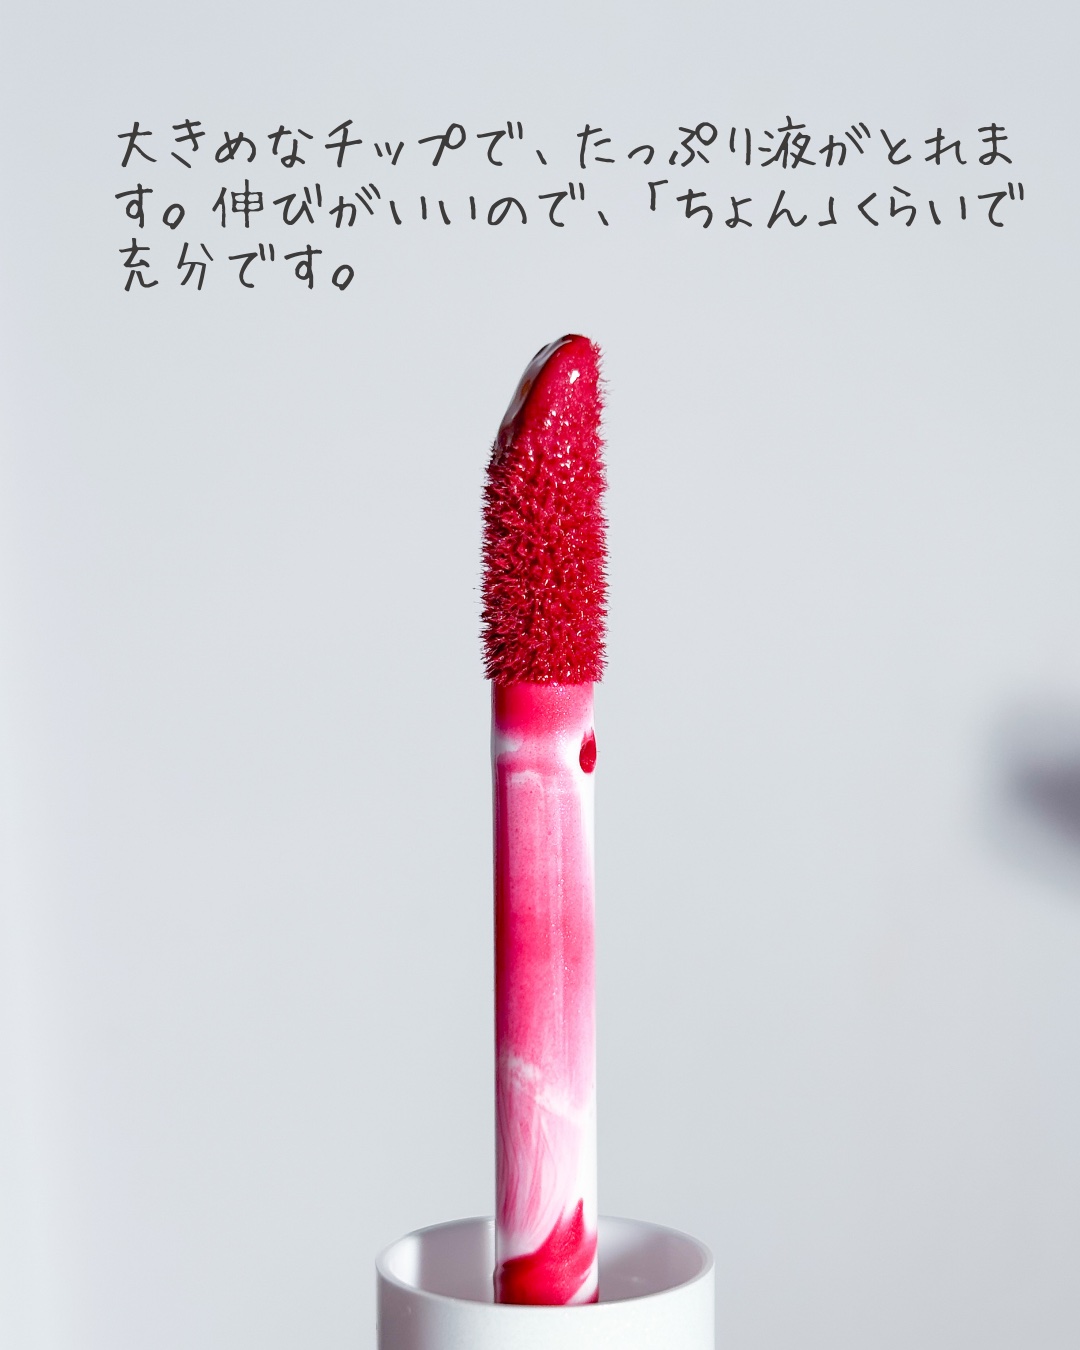 大きめなチップで、たっぷり液がとれま
す。伸びがいいので、「ちょん」くらいで
充分です。